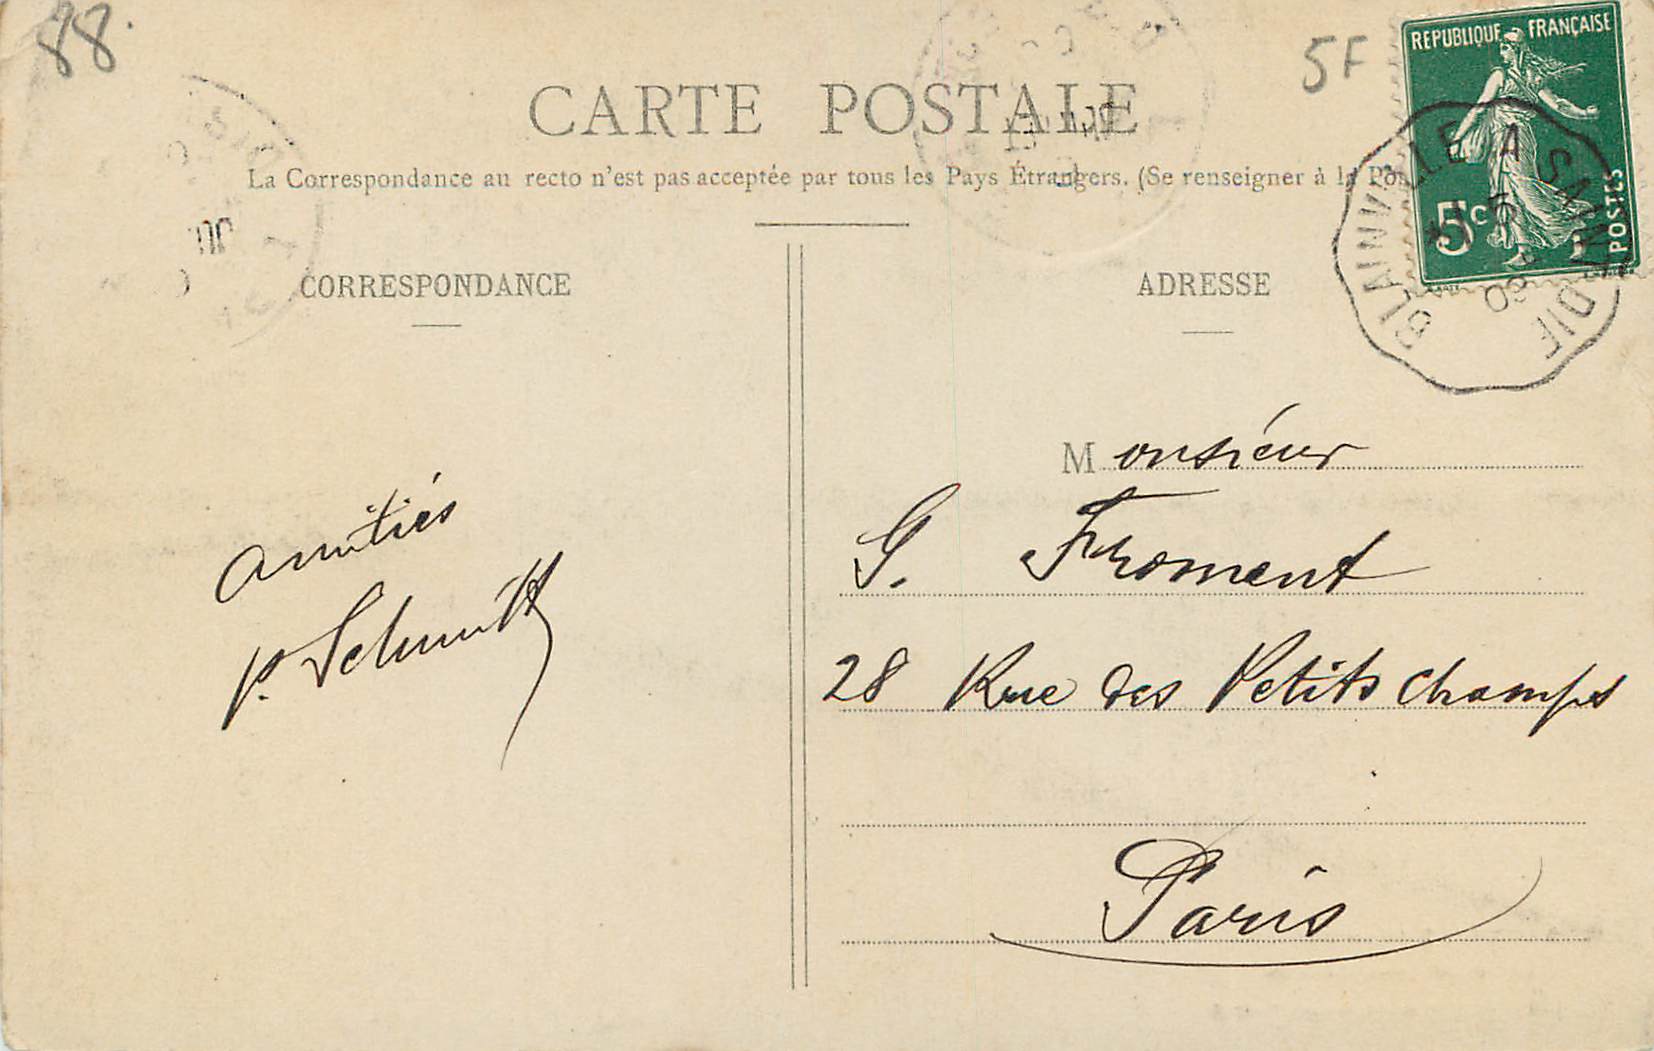 88.
5F
REPUBLIQUE FRANÇAISE
5c
POSTES
BLAINVILLE A SAINT DIE
CARTE POSTALE
La Correspondance au recto n'est pas acceptée par tous les Pays Étrangers. (Se renseigner à la
CORRESPONDANCE
amitiés
p. Schmitt
ADRESSE
Monsieur
G. Froment
28 Rue des Petits champs
Paris